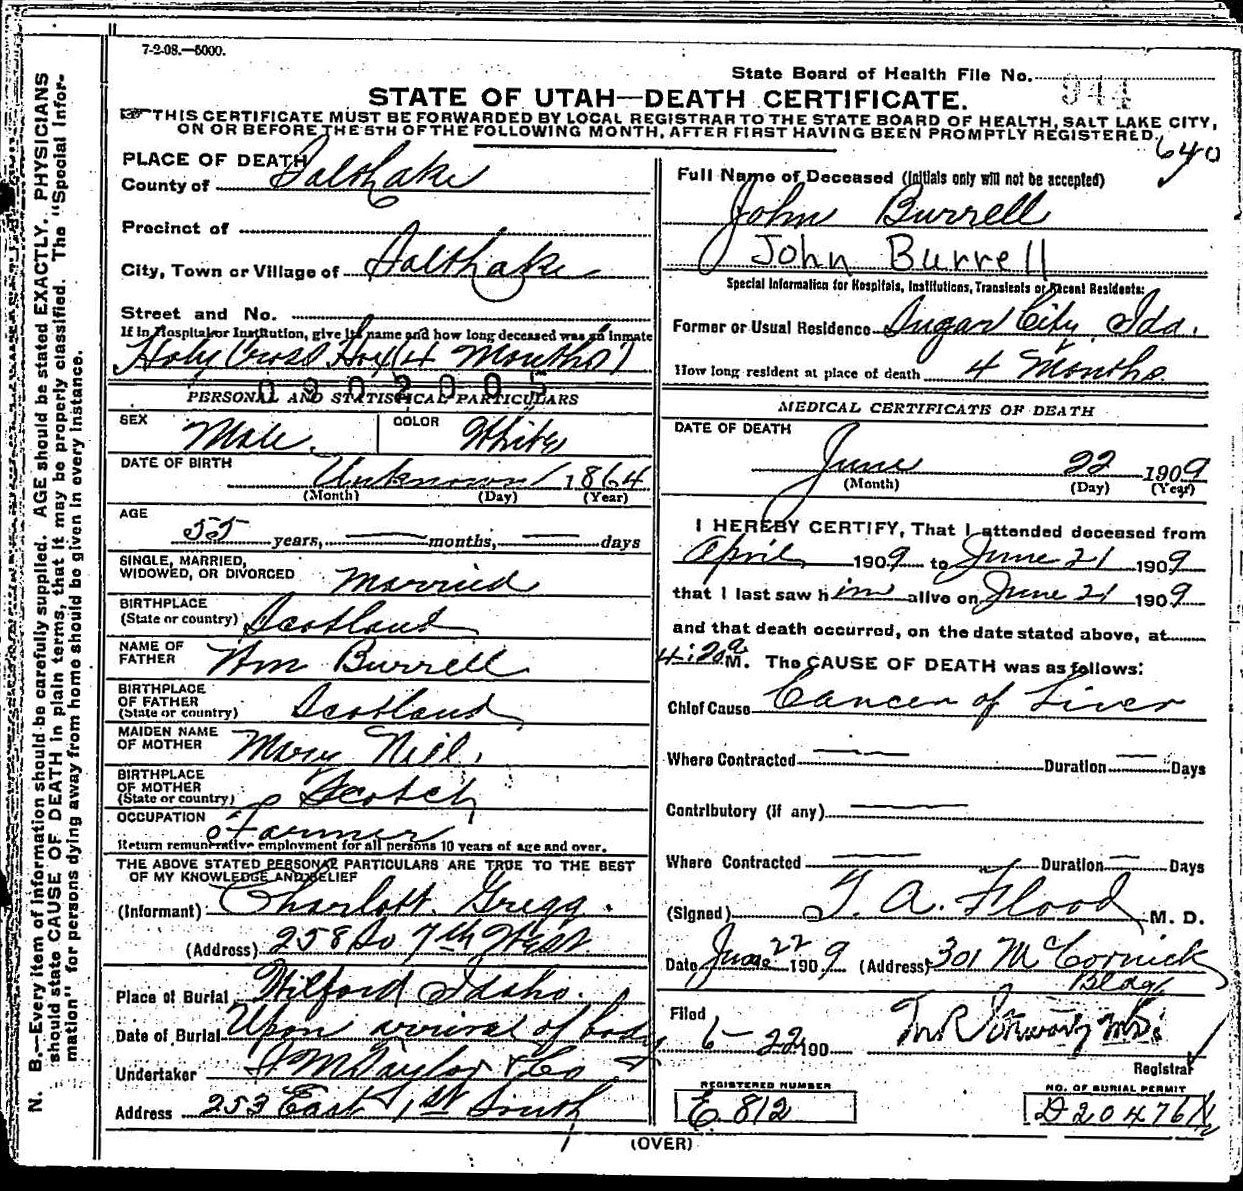 7-2-08.—5000.
State Board of Health File No. 944
STATE OF UTAH—DEATH CERTIFICATE.
THIS CERTIFICATE MUST BE FORWARDED BY LOCAL REGISTRAR TO THE STATE BOARD OF HEALTH, SALT LAKE CITY,
ON OR BEFORE THE 5TH OF THE FOLLOWING MONTH, AFTER FIRST HAVING BEEN PROMPTLY REGISTERED.
640
PLACE OF DEATH
County of Salt Lake
Precinct of
City, Town or Village of Salt Lake
Street and No.
If in Hospital or Institution, give its name and how long deceased was an inmate
Holy Cross Hos (4 Months)
0902005
PERSONAL AND STATISTICAL PARTICULARS
SEX Male. COLOR White
DATE OF BIRTH Unknown 1864
(Month) (Day) (Year)
AGE
55 years, — months, — days
SINGLE, MARRIED,
WIDOWED, OR DIVORCED Married
BIRTHPLACE
(State or country) Scotland
NAME OF
FATHER Wm Burrell
BIRTHPLACE
OF FATHER
(State or country) Scotland
MAIDEN NAME
OF MOTHER Mary Niel
BIRTHPLACE
OF MOTHER
(State or country) Scotch
OCCUPATION
Farmer
Return remunerative employment for all persons 10 years of age and over.
THE ABOVE STATED PERSONAL PARTICULARS ARE TRUE TO THE BEST
OF MY KNOWLEDGE AND BELIEF
(Informant) Charlott. Gregg.
(Address) 258 So 7th West
Place of Burial Wilford Idaho.
Date of Burial Upon arrival of body
Undertaker S M Taylor & Co
Address 253 East 1st South
Full Name of Deceased (Initials only will not be accepted)
John Burrell
John Burrell
Special Information for Hospitals, Institutions, Transients or Recent Residents:
Former or Usual Residence Sugar City, Ida.
How long resident at place of death 4 Months.
MEDICAL CERTIFICATE OF DEATH
DATE OF DEATH
June 22 1909
(Month) (Day) (Year)
I HEREBY CERTIFY, That I attended deceased from
April 1909 to June 21 1909
that I last saw him alive on June 21 1909
and that death occurred, on the date stated above, at
4:20 a M. The CAUSE OF DEATH was as follows:
Chief Cause Cancer of Liver
Where Contracted — Duration — Days
Contributory (if any) —
Where Contracted — Duration — Days
(Signed) T. A. Flood M. D.
Date June 22 1909 (Address) 301 McCornick
Bldg
Filed
6-22 190
Registrar
REGISTERED NUMBER
E. 812
NO. OF BURIAL PERMIT
D 20476 1/2
(OVER)
N. B.—Every item of information should be carefully supplied. AGE should be stated EXACTLY. PHYSICIANS
should state CAUSE OF DEATH in plain terms, that it may be properly classified. The "Special Infor-
mation" for persons dying away from home should be given in every instance.